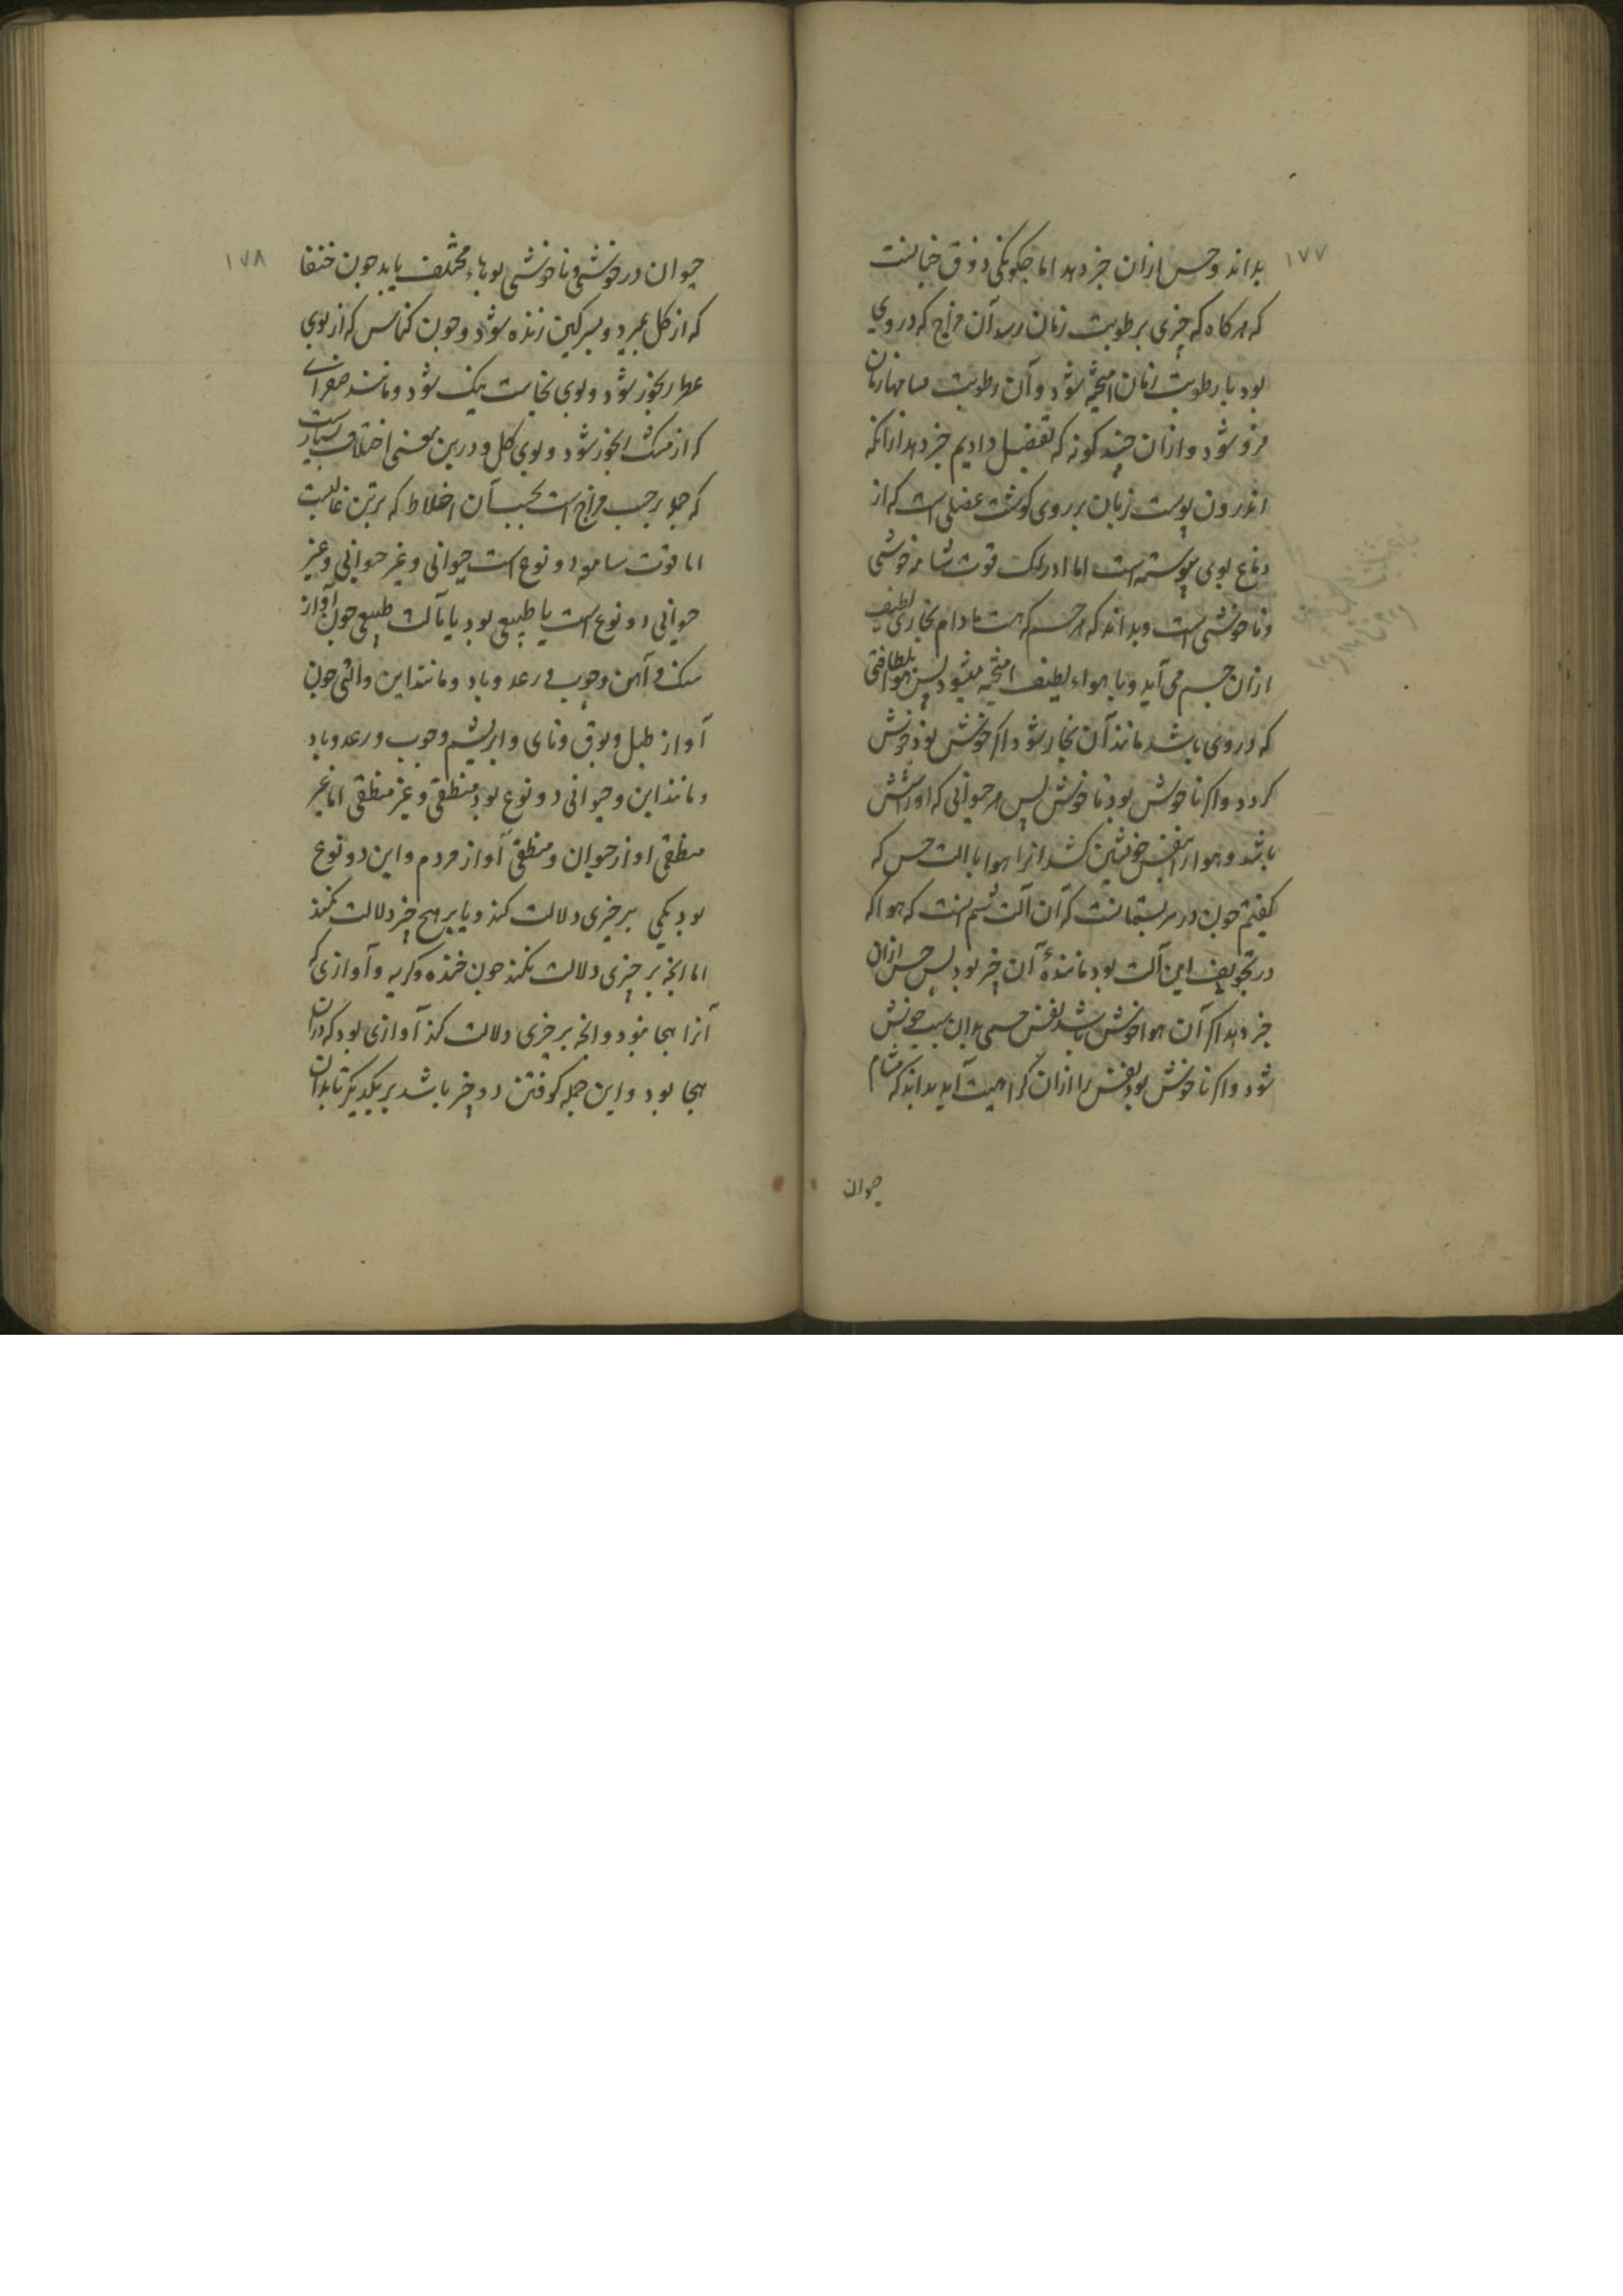 ۱۷۷
بداند و حس ازان خبر دهد اما چکونکی ذوق چنانست
که هرکاه که چیزی برطوبت زبان رسد آن مزاج که در وی
بود با رطوبت زبان آمیخته شود و آن رطوبت بمسامهاء زبان
فرو شود و ازان چند کونه که تفضیل دادیم خبر دهد ازانکه
اندرون پوست زبان بر روی کوشت عضلی است که از
دماغ بوی پیوسته است اما ادراک قوت شامه خوشی
و ناخوشی است و بداند که هر جسم که هست مادام بخاری لطیف
ازان جسم می آید و با هواء لطیف آمیخته میشود پس هوا بلطافتی
که در وی باشد مانند آن بخار شود اکر خوش بود خوش
کردد و اکر ناخوش بود ناخوش پس هر حیوانی که او را شش
باشد و هوا را بنفس خویشتن کشد انرا هوا با الت حس که
کفتیم چون دو سر پستانست که آن آلت شم است که هوا که
در تجویف این آلت بود مانندهٔ آن چیز بود پس حس ازان
خبر دهد اکر آن هوا خوش باشد نفس حسی بدان سبب خوش
شود و اکر ناخوش بود نفس را ازان کراهیت آید بداند که مشام
حیوان
۱۷۸
حیوان در خوشی و ناخوشی بویهاء مختلف یابد چون خنفسا
که از کل بمیرد و بسرکین زنده شود و چون کناس که از بوی
عطر رنجور شود و بوی نجاست نیک شود و مانند صفرائی
که از مشک رنجور شود و بوی کل و درین معنی اختلاف بسیارست
که هر یک بر حسب مزاج است بحسب آن اخلاط که برتن غالبست
اما قوت سامعه دو نوع است حیوانی و غیر حیوانی و غیر
حیوانی دو نوع است یا طبیعی بود یا بآلت طبیعی چون آواز
سنک و آهن و چوب و رعد و باد و مانند این و آلتی چون
آواز طبل و بوق و نای و ابریشم و چوب و رعد و باد
و مانند این و حیوانی دو نوع بود منطقی و غیر منطقی اما غیر
منطقی اواز حیوان و منطقی آواز مردم و این دو نوع
بود یکی بر چیزی دلالت کند و یا بر هیچ چیز دلالت نکند
اما انچه بر چیزی دلالت نکند چون خنده و کریه و آوازی که
آنرا هجا نبود و انچه بر چیزی دلالت کند آوازی بود که دران
هجا بود و این جمله کوفتن دو چیز باشد بر یکدیکر تا بدان